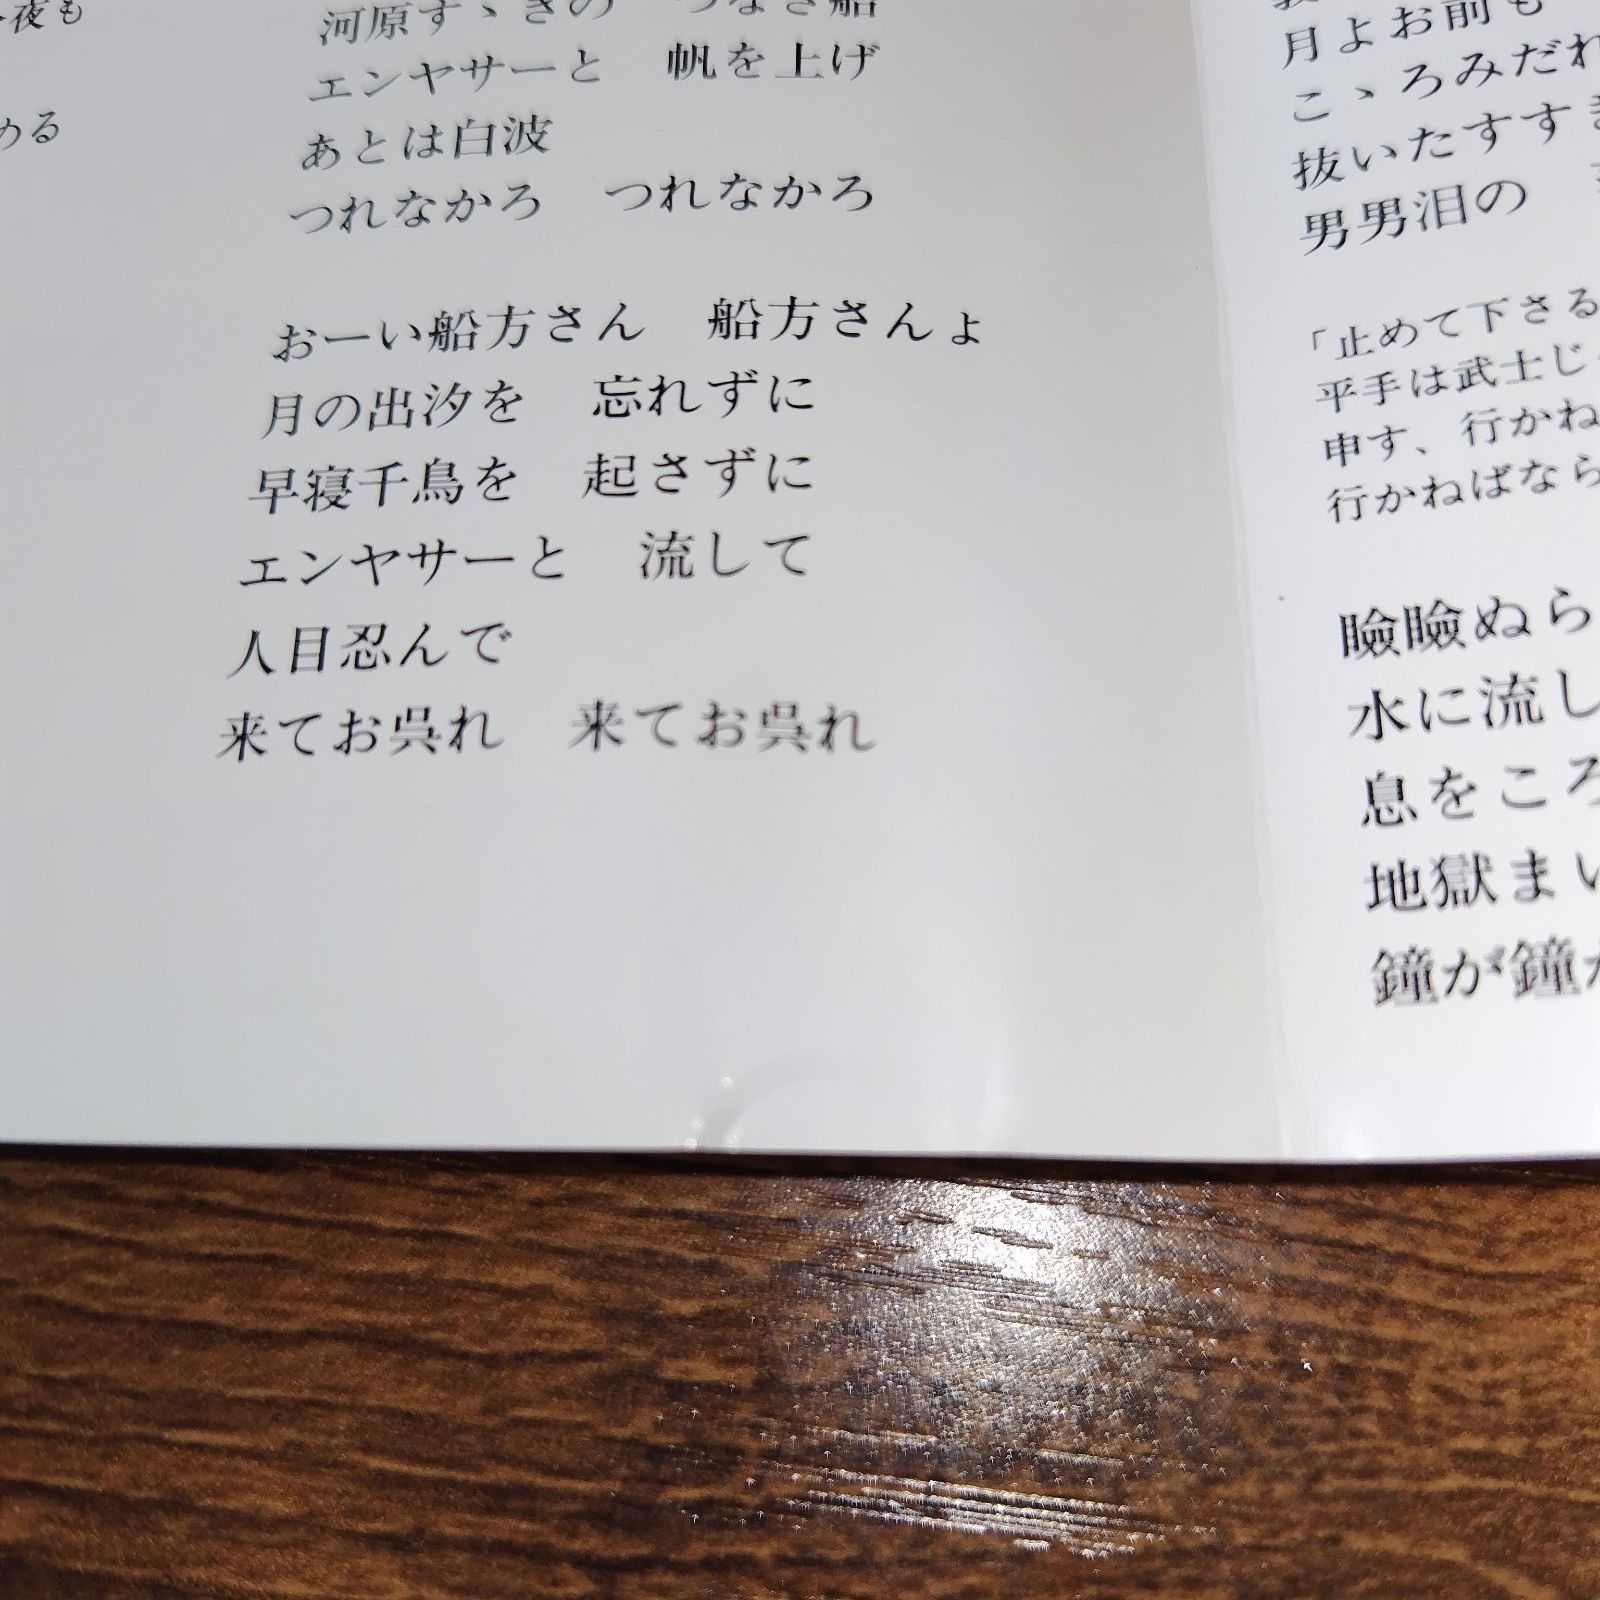 夜も
める
河原すゝきの　つなぎ船
エンヤサーと　帆を上げ
あとは白波
つれなかろ　つれなかろ
おーい船方さん　船方さんょ
月の出汐を　忘れずに
早寝千鳥を　起さずに
エンヤサーと　流して
人目忍んで
来てお呉れ　来てお呉れ
月よお前も
こゝろみだれ
抜いたすすき
男男泪の
「止めて下さる
平手は武士じ
申す、行かね
行かねばなら
瞼瞼ぬら
水に流し
息をころ
地獄まい
鐘が鐘が